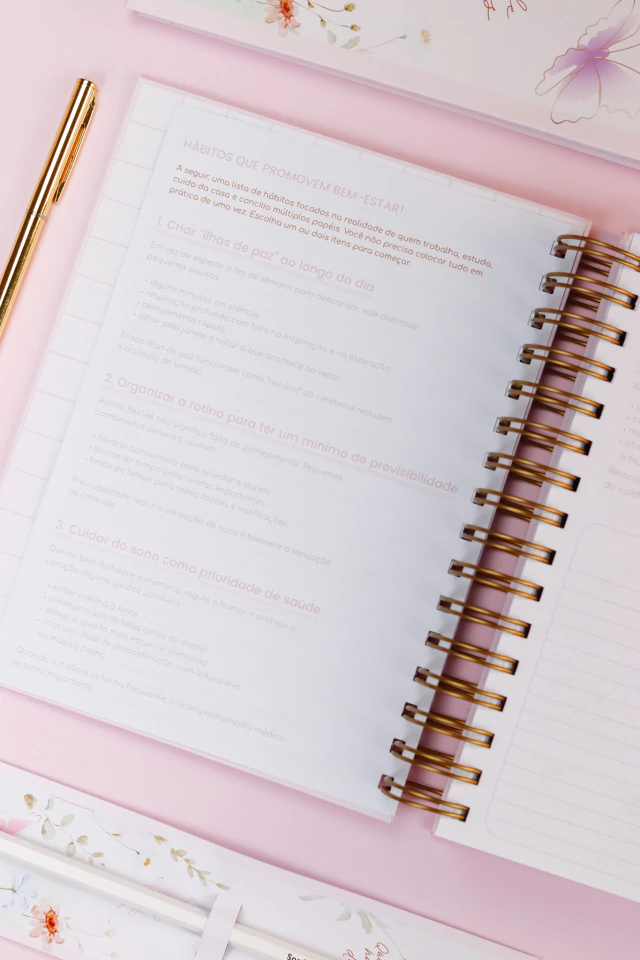 HÁBITOS QUE PROMOVEM BEM-ESTAR!
A seguir, uma lista de hábitos focados na realidade de quem trabalha, estuda,
cuida da casa e concilia múltiplos papéis. Você não precisa colocar tudo em
prática de uma vez. Escolha um ou dois itens para começar.
1. Criar "ilhas de paz" ao longo do dia
Em vez de esperar o fim de semana para descansar, vale distribuir
pequenas pausas:
• alguns minutos em silêncio
• respiração profunda com foco na inspiração e na expiração
• alongamento rápido
• olhar pela janela e notar o que acontece ao redor
Essas ilhas de paz funcionam como "reinício" do cérebro e reduzem
o acúmulo de tensão.
2. Organizar a rotina para ter um mínimo de previsibilidade
Rotina flexível não significa falta de planejamento. Pequenos
combinados pessoais ajudam:
• horário aproximado para acordar e dormir
• blocos de tempo para tarefas importantes
• limite de tempo para redes sociais e notificações
Previsibilidade reduz a sensação de caos e favorece a sensação
de controle.
3. Cuidar do sono como prioridade de saúde
Dormir bem fortalece a memória, regula o humor e protege o
coração. Alguns ajustes possíveis:
• evitar cafeína à noite
• diminuir o uso de telas antes de dormir
• deixar o quarto mais escuro e silencioso
• criar um ritual de desaceleração, com leitura leve
ou música calma
Quando a insônia se torna frequente, o acompanhamento médico
se torna importante.